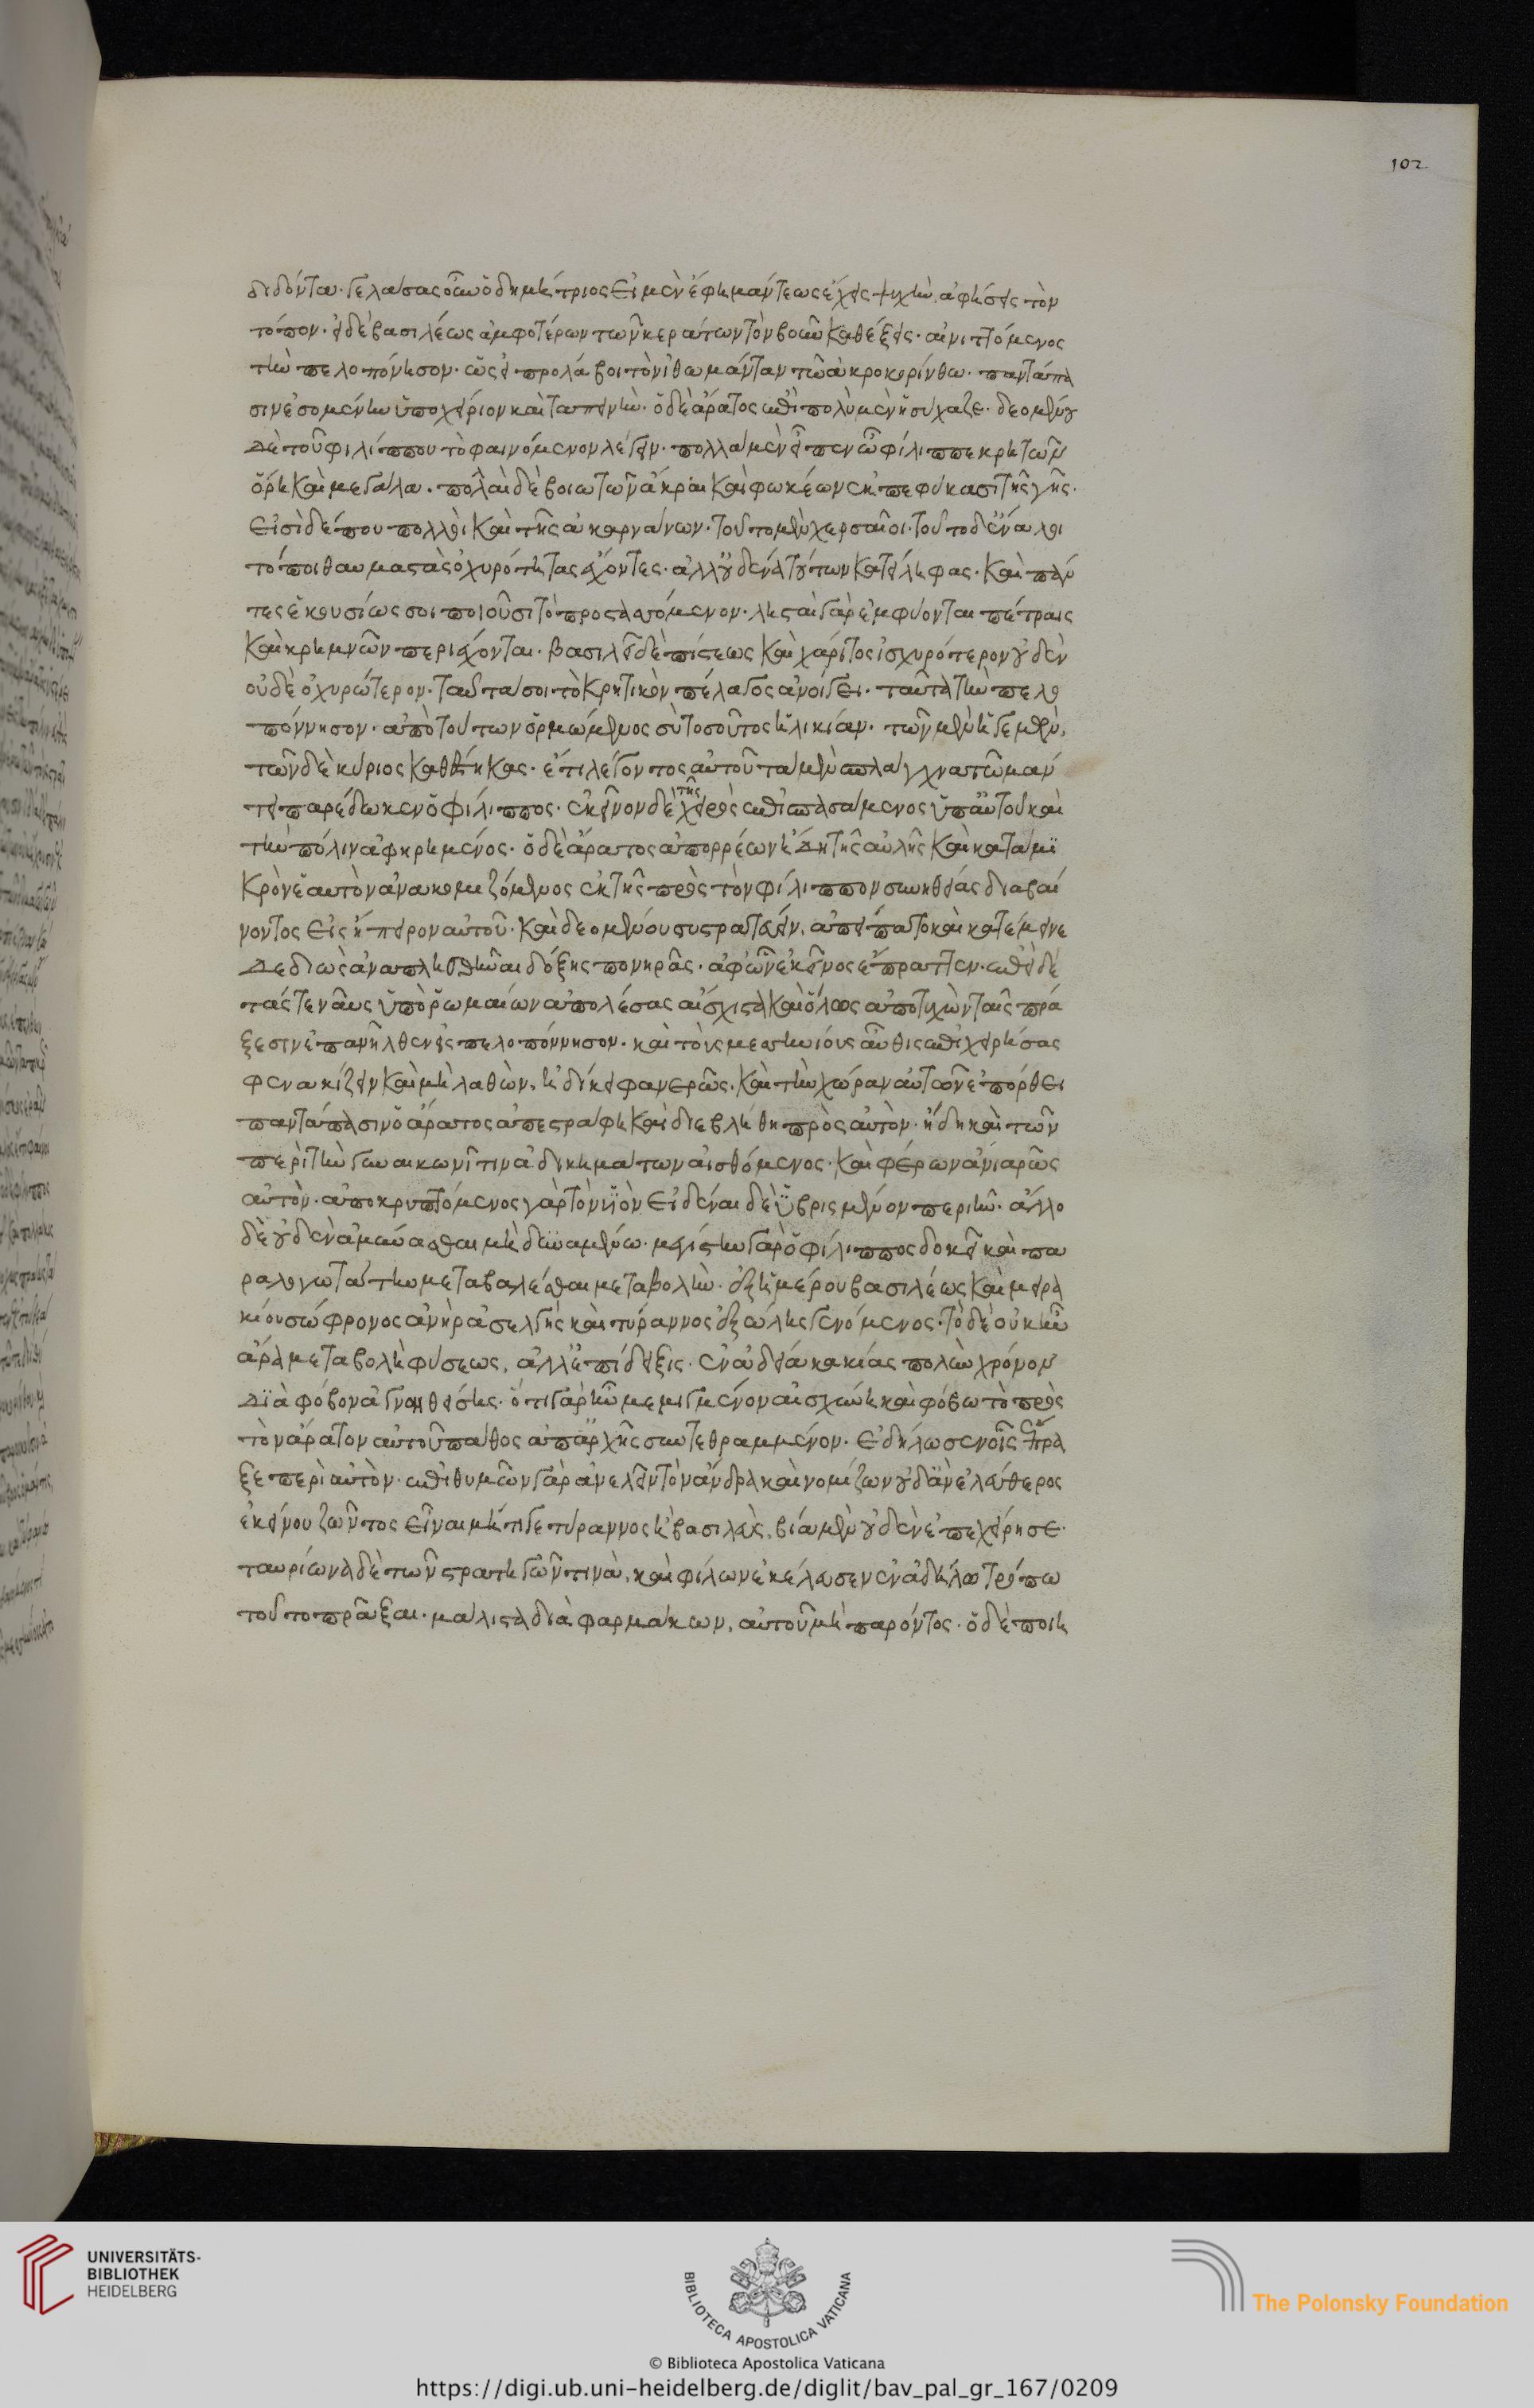 102
διδόνται. γελάσας οὖν ὁ δημήτριος εἰ μὲν ἔφη μάντεως ἔχεις ψυχὴν, ἀφήσεις τὸν
τόπον. εἰ δὲ βασιλέως ἀμφοτέρων τῶν κεράτων τὸν βοῦν καθέξεις. αἰνιττόμενος
τὴν πελοπόνησον. ὡς εἰ προλάβοι τὸν ἰθωμάνταν τῶ ἀκροκορίνθω. παντάπα
σιν ἐσομένην ὑποχείριον καὶ ταπεινήν. ὁ δὲ ἄρατος ἐπὶ πολὺ μὲν ἡσύχαζε. δεομένου
δὲ τοῦ φιλίππου τὸ φαινόμενον λέγειν. πολλὰ μὲν εἶπεν ὦ φίλιππε κρητῶν
ὄρη καὶ μεγάλα. πολλαὶ δὲ βοιωτῶν ἄκραι καὶ φωκέων ἐκπεφύκασι τῆς γῆς.
εἰσὶ δέ που πολλοὶ καὶ τῆς ἀκαρνάνων. τοῦτο μὲν χερσαῖοι. τοῦτο δ' ἐνάλιοι
τόποι θαυμαστὰς ὀχυρότητας ἔχοντες. ἀλλ' οὐδένα τούτων κατείληφας. καὶ πάν
τες ἑκουσίως σοι ποιοῦσι τὸ προστασσόμενον. λησταὶ γὰρ ἐμφύονται πέτραις
καὶ κρημνῶν περιέχονται. βασιλεῖ δὲ πίστεως καὶ χάριτος ἰσχυρότερον οὐδὲν
οὐδὲ ὀχυρώτερον. ταῦτά σοι τὸ κρητικὸν πέλαγος ἀνοίγει. ταῦτα τὴν πελο
πόννησον. ἀπὸ τούτων ὁρμώμενος σὺ τοσοῦτος ἡλικίαν. τῶν μὲν ἡγεμὼν,
τῶν δὲ κύριος καθέστηκας. ἔτι λέγοντος αὐτοῦ τὰ μὲν σπλάγχνα τῶ μάν
τει παρέδωκεν ὁ φίλιππος. ἐκεῖνον δὲ τῆς χειρὸς ἐπισπασάμενος ὑπ' αὐτοῦ καὶ
τὴν πόλιν ἀφηρημένος. ὁ δὲ ἄρατος ἀπορρέων ἤδη τῆς αὐλῆς καὶ κατὰ μϊ
κρὸν ἑαυτὸν ἀνακομιζόμενος ἐκ τῆς πρὸς τὸν φίλιππον συνηθείας διαβαί
νοντος εἰς ἤπειρον αὐτοῦ. καὶ δεομένου συστρατεύειν, ἀπείπατο καὶ κατέμεινε
δεδιὼς ἀναπλησθῆναι δόξης πονηρᾶς. ἀφ' ὧν ἐκεῖνος ἔπραττεν. ἐπεὶ δὲ
τάς τε ναῦς ὑπὸ ῥωμαίων ἀπολέσας αἴσχιστα καὶ ὅλως ἀποτυχὼν ταῖς πρά
ξεσιν ἐπανῆλθεν εἰς πελοπόννησον. καὶ τοὺς μεσσηνίους αὖθις ἐπιχειρήσας
φενακίζειν καὶ μὴ λαθὼν, ἠδίκει φανερῶς. καὶ τὴν χώραν αὐτῶν ἐπόρθει
παντάπασιν ὁ ἄρατος ἀπεστράφη καὶ διεβλήθη πρὸς αὐτὸν. ἤδη καὶ τῶν
περὶ τὴν γυναικωνῖτιν ἀδικημάτων αἰσθόμενος. καὶ φέρων ἀνιαρῶς
αὐτὸν. ἀποκρυπτόμενος γὰρ τὸν υἱὸν εἰδέναι δὲ ὕβρισμένον περιῆν. ἄλλο
δὲ οὐδὲν ἀμύνασθαι μὴ δυναμένω. μεγίστην γὰρ ὁ φίλιππος δοκεῖ καὶ πα
ραλογωτάτην μεταβαλέσθαι μεταβολὴν. ἐξ ἡμέρου βασιλέως καὶ μειρα
κίου σώφρονος ἀνὴρ ἀσελγὴς καὶ τύραννος ἐξώλης γενόμενος. τὸ δὲ οὐκ ἦν
ἄρα μεταβολὴ φύσεως, ἀλλ' ἐπίδειξις. ἐν ἀδεία κακίας πολὺν χρόνον
διὰ φόβον ἀγνοηθείσης. ὅτι γὰρ ἦν μεμιγμένον αἰσχύνη καὶ φόβω τὸ πρὸς
τὸν ἄρατον αὐτοῦ πάθος ἀπ' ἀρχῆς συντεθραμμένον. ἐδήλωσεν οἷς ἔπρα
ξε περὶ αὐτὸν. ἐπιθυμῶν γὰρ ἀνελεῖν τὸν ἄνδρα καὶ νομίζων οὐδ' ἂν ἐλεύθερος
ἐκείνου ζῶντος εἶναι μή τι γε τύραννος ἢ βασιλεὺς, βία μὲν οὐδὲν ἐπεχείρησε.
ταυρίωνα δὲ τῶν στρατηγῶν τινὰ, καὶ φίλων ἐκέλευσεν ἐν ἀδήλω τρόπω
τοῦτο πρᾶξαι. μάλιστα διὰ φαρμάκων, αὐτοῦ μὴ παρόντος. ὁ δὲ ποιη
UNIVERSITÄTS-
BIBLIOTHEK
HEIDELBERG
BIBLIOTECA APOSTOLICA VATICANA
The Polonsky Foundation
© Biblioteca Apostolica Vaticana
https://digi.ub.uni-heidelberg.de/diglit/bav_pal_gr_167/0209